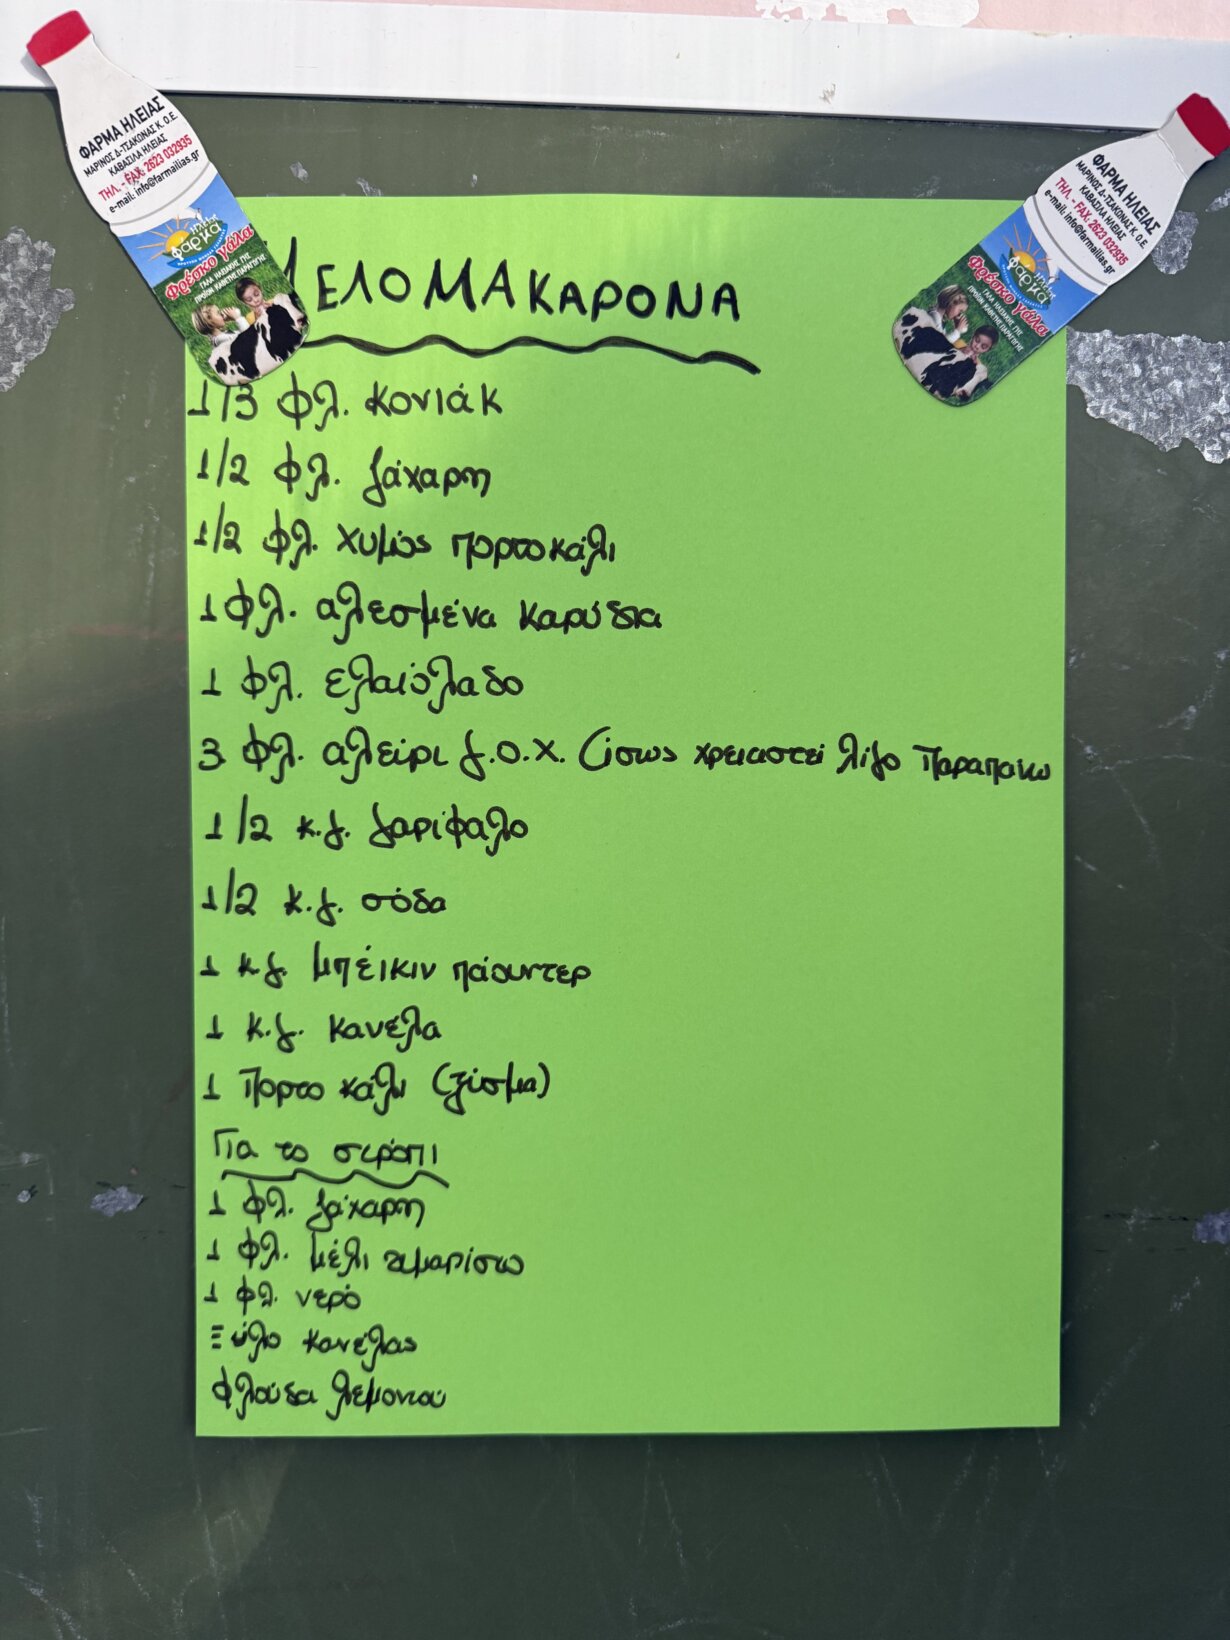 ΦΑΡΜΑ ΗΛΕΙΑΣ
ΜΑΡΙΝΟΣ Δ-ΤΣΑΚΟΝΑΣ Κ. Ο.Ε.
ΚΑΒΑΣΙΛΑ ΗΛΕΙΑΣ
ΤΗΛ. - FAX: 2623 032935
e-mail: info@farmailias.gr
Ηλείας
φαρμα
Φρέσκο γάλα
ΓΑΛΑ ΗΛΕΙΑΚΗΣ ΓΗΣ
ΠΡΟΪΟΝ ΚΑΘΕΤΗΣ ΠΑΡΑΓΩΓΗΣ
ΦΑΡΜΑ ΗΛΕΙΑΣ
ΜΑΡΙΝΟΣ Δ-ΤΣΑΚΟΝΑΣ Κ. Ο.Ε.
ΚΑΒΑΣΙΛΑ ΗΛΕΙΑΣ
ΤΗΛ. - FAX: 2623 032935
e-mail: info@farmailias.gr
Ηλείας
φαρμα
Φρέσκο γάλα
ΓΑΛΑ ΗΛΕΙΑΚΗΣ ΓΗΣ
ΠΡΟΪΟΝ ΚΑΘΕΤΗΣ ΠΑΡΑΓΩΓΗΣ
ΜΕΛΟΜΑΚΑΡΟΝΑ
1/3 φλ. κονιάκ
1/2 φλ. ζάχαρη
1/2 φλ. χυμός πορτοκάλι
1 φλ. αλεσμένα καρύδια
1 φλ. ελαιόλαδο
3 φλ. αλεύρι γ.ο.χ. (ίσως χρειαστεί λίγο παραπάνω
1/2 κ.γ. γαρίφαλο
1/2 κ.γ. σόδα
1 κ.γ. μπέικιν πάουντερ
1 κ.γ. κανέλα
1 πορτοκάλι (ξύσμα)
Για το σιρόπι
1 φλ. ζάχαρη
1 φλ. μέλι θυμαρίσιο
1 φλ. νερό
Ξύλο κανέλας
φλούδα λεμονιού